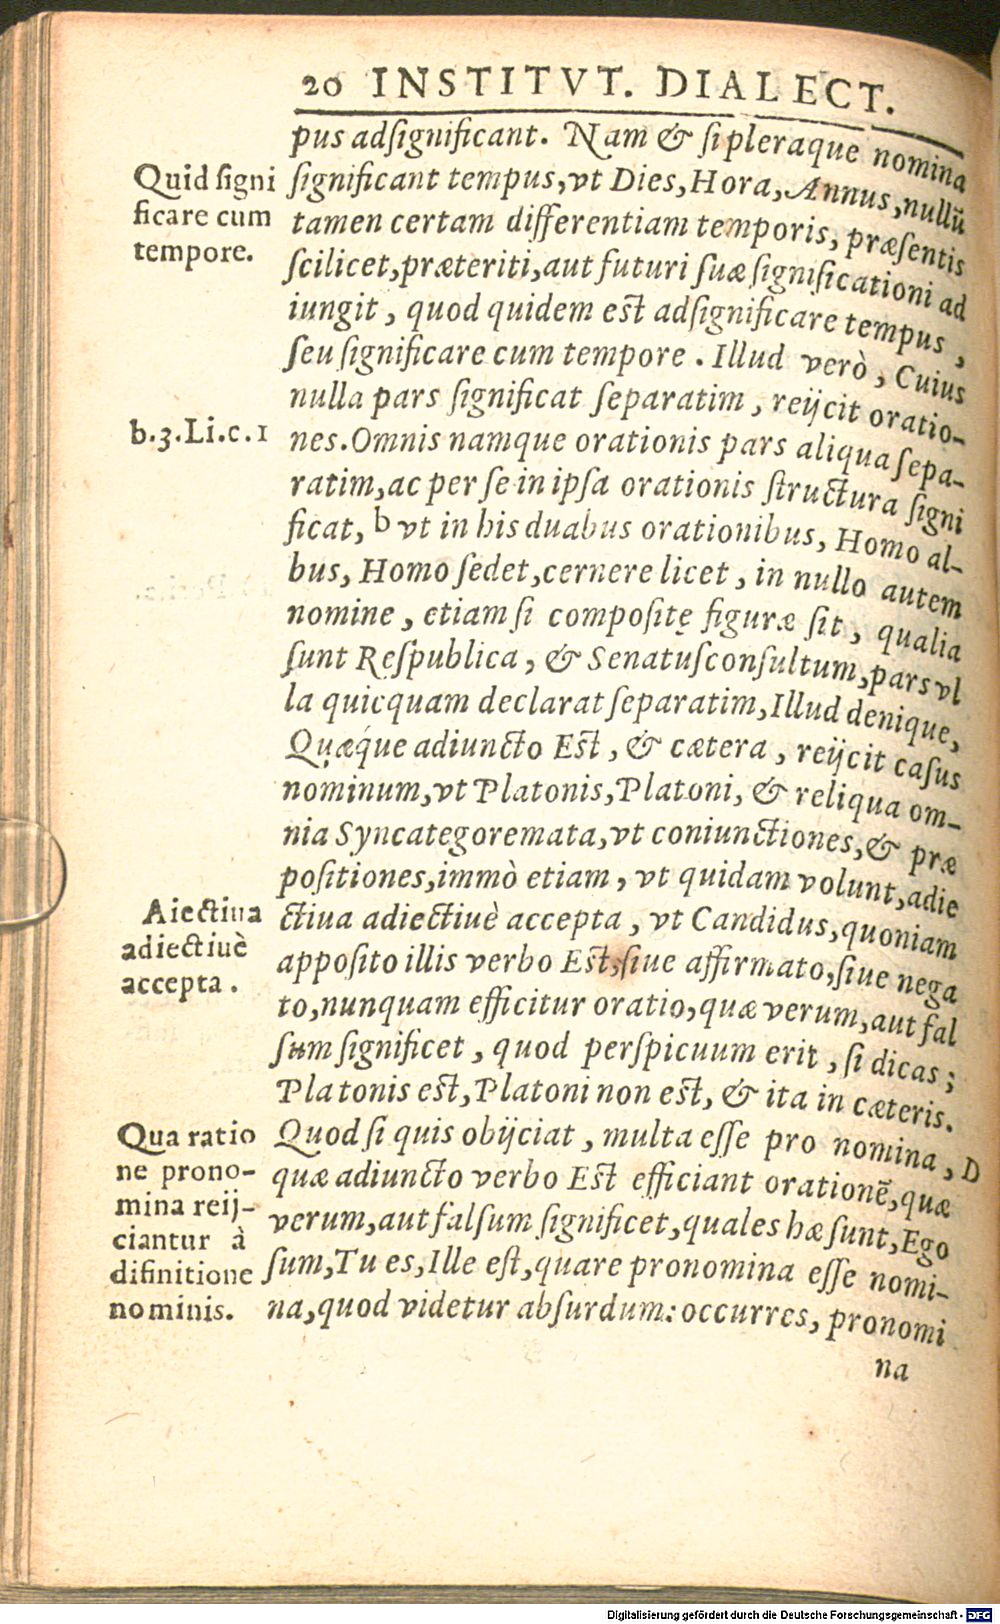 20 INSTITVT. DIALECT.
pus adſignificant. Nam & ſi pleraque nomina
ſignificant tempus, vt Dies, Hora, Annus, nullū
tamen certam differentiam temporis, præſentis
ſcilicet, præteriti, aut futuri ſuæ ſignificationi ad
iungit, quod quidem eſt adſignificare tempus,
ſeu ſignificare cum tempore. Illud verò, Cuius
nulla pars ſignificat ſeparatim, reijcit oratio-
nes. Omnis namque orationis pars aliqua ſepa-
ratim, ac per ſe in ipſa orationis ſtructura ſigni
ficat, b vt in his duabus orationibus, Homo al-
bus, Homo ſedet, cernere licet, in nullo autem
nomine, etiam ſi compoſitę figuræ ſit, qualia
ſunt Reſpublica, & Senatuſconſultum, pars vl
la quicquam declarat ſeparatim, Illud denique,
Quæque adiuncto Eſt, & cætera, reijcit caſus
nominum, vt Platonis, Platoni, & reliqua om-
nia Syncategoremata, vt coniunctiones, & præ
poſitiones, immò etiam, vt quidam volunt, adie
ctiua adiectiuè accepta, vt Candidus, quoniam
appoſito illis verbo Eſt, ſiue affirmato, ſiue nega
to, nunquam efficitur oratio, quæ verum, aut fal
ſum ſignificet, quod perſpicuum erit, ſi dicas;
Platonis eſt, Platoni non eſt, & ita in cæteris.
Quod ſi quis obijciat, multa eſſe pro nomina, D
quæ adiuncto verbo Eſt efficiant orationē, quæ
verum, aut falſum ſignificet, quales hæ ſunt, Ego
ſum, Tu es, Ille eſt, quare pronomina eſſe nomi-
na, quod videtur abſurdum: occurres, pronomi
na
Quid ſigni
ficare cum
tempore.
b.3.Li.c.1
Aiectiua
adiectiuè
accepta.
Qua ratio
ne prono-
mina reij-
ciantur à
difinitione
nominis.
Digitalisierung gefördert durch die Deutsche Forschungsgemeinschaft - DFG